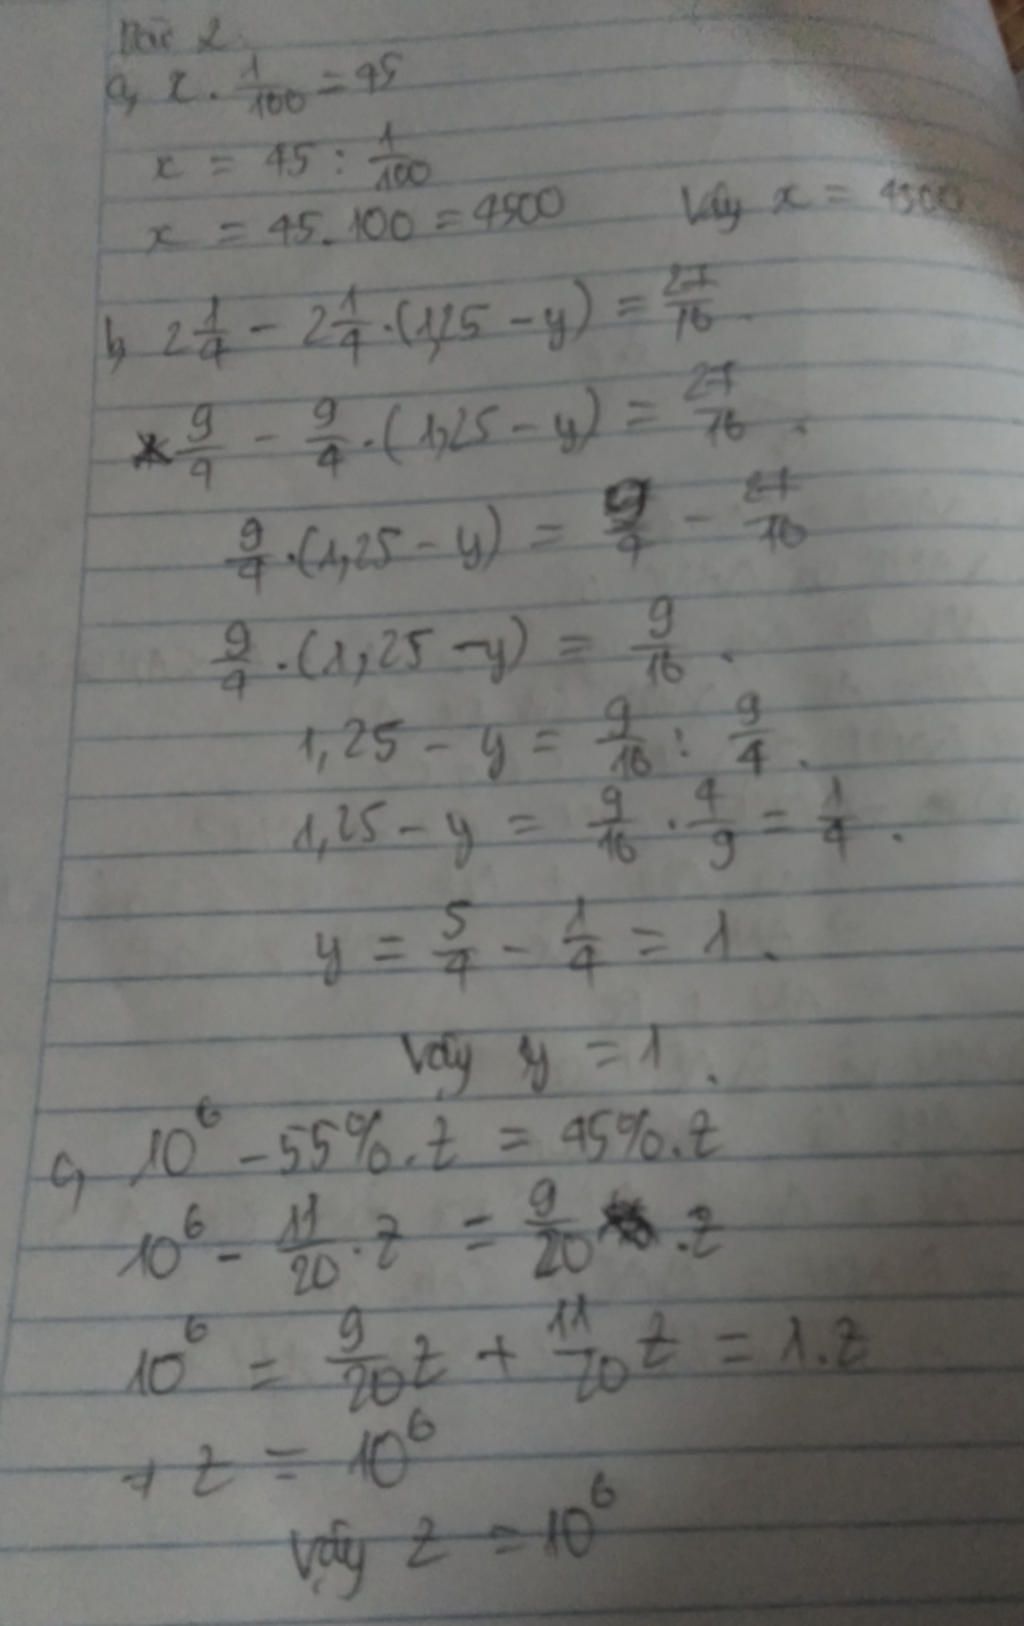 Bài 2
a, x . 1/100 = 45
x = 45 : 1/100
x = 45 . 100 = 4500 Vậy x = 4500
b, 2 1/4 - 2 1/4 . (1,25 - y) = 27/16 .
9/4 - 9/4 . (1,25 - y) = 27/16 .
9/4 . (1,25 - y) = 9/4 - 27/16
9/4 . (1,25 - y) = 9/16 .
1,25 - y = 9/16 : 9/4 .
1,25 - y = 9/16 . 4/9 = 1/4 .
y = 5/4 - 1/4 = 1 .
Vậy y = 1 .
c, 10^6 - 55% . z = 45% . z
10^6 - 11/20 . z = 9/20 . z
10^6 = 9/20 z + 11/20 z = 1 . z
+ z = 10^6
Vậy z = 10^6